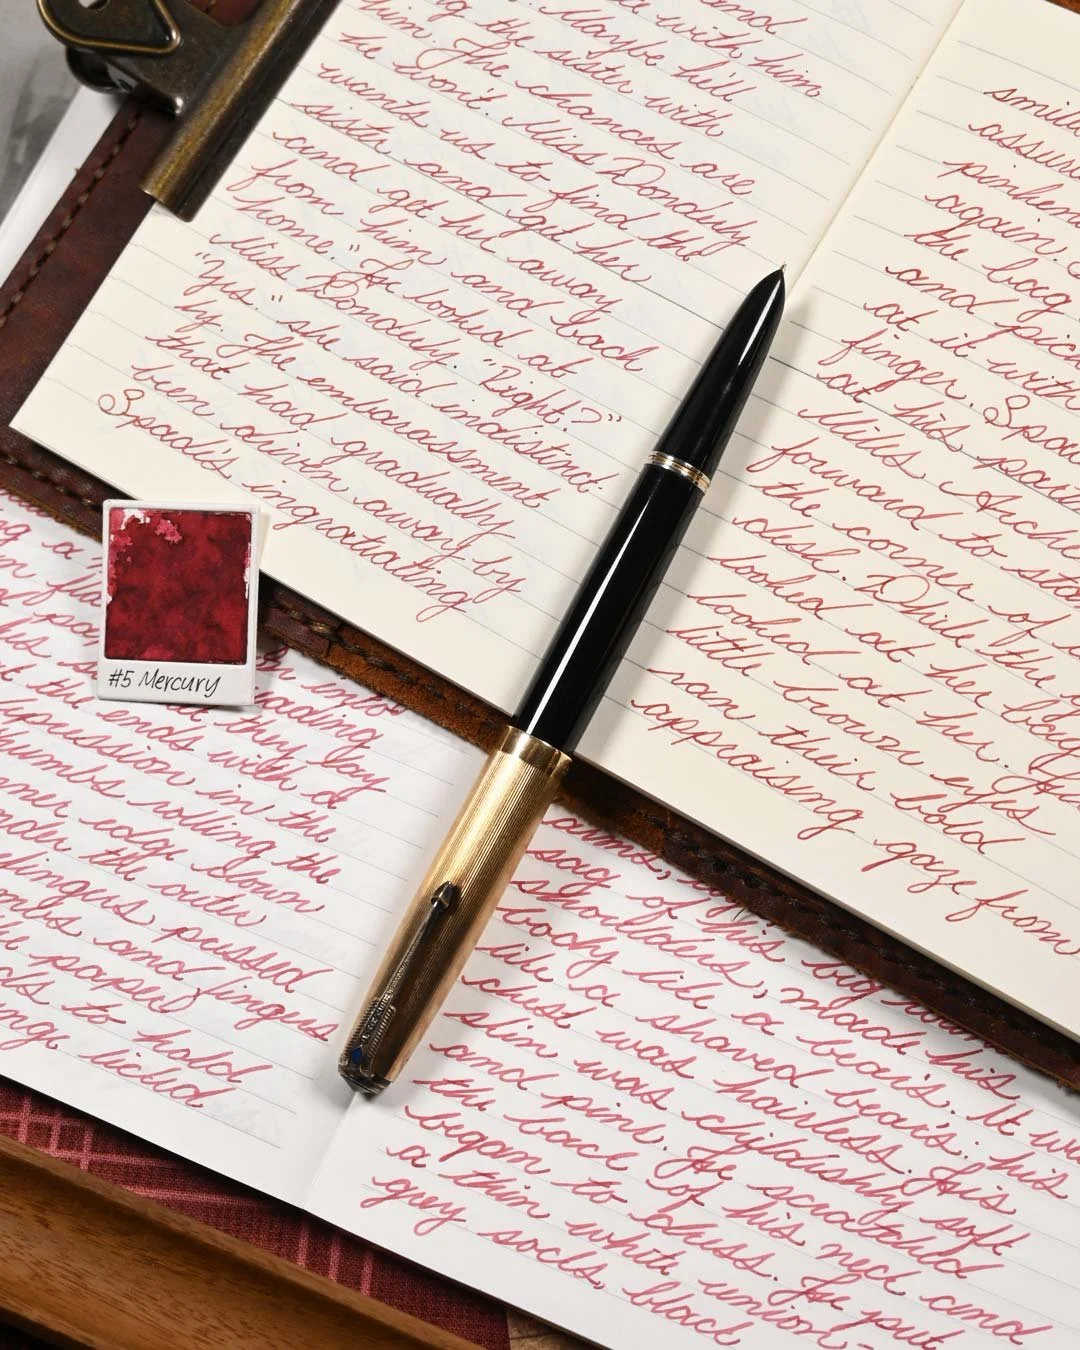 and
with him
Maybe he'll
the sister with
him. The chances are
he won't. Miss Donduly
wants us to find the
sister and get her
and get her away
from him and back
home." He looked at
Miss Donduly. "Right?"
"Yes." she said indistinct-
ly. The embarassment
that had gradually
been driven away by
Spade's ingratiating
again.
the bag
and
at it with
finger.
at his
Mills
forward to
the corner of
desk. While the
looked at her
looked at her.
little brown eyes
ran their bold
appraising gaze from
#5 Mercury
loading
the ends with a
in the
rolling the
edge down
the outer
fingers pressed
and fingers
to hold
licked
arms,
sag of his big
shoulders, made his
body like a bear's. It
like a shaved bear's. his
chest was hairless. His
skin was childishly soft
and pink. He scratched
the back of his neck and
began to dress. He put
a thin white union-
grey socks, black